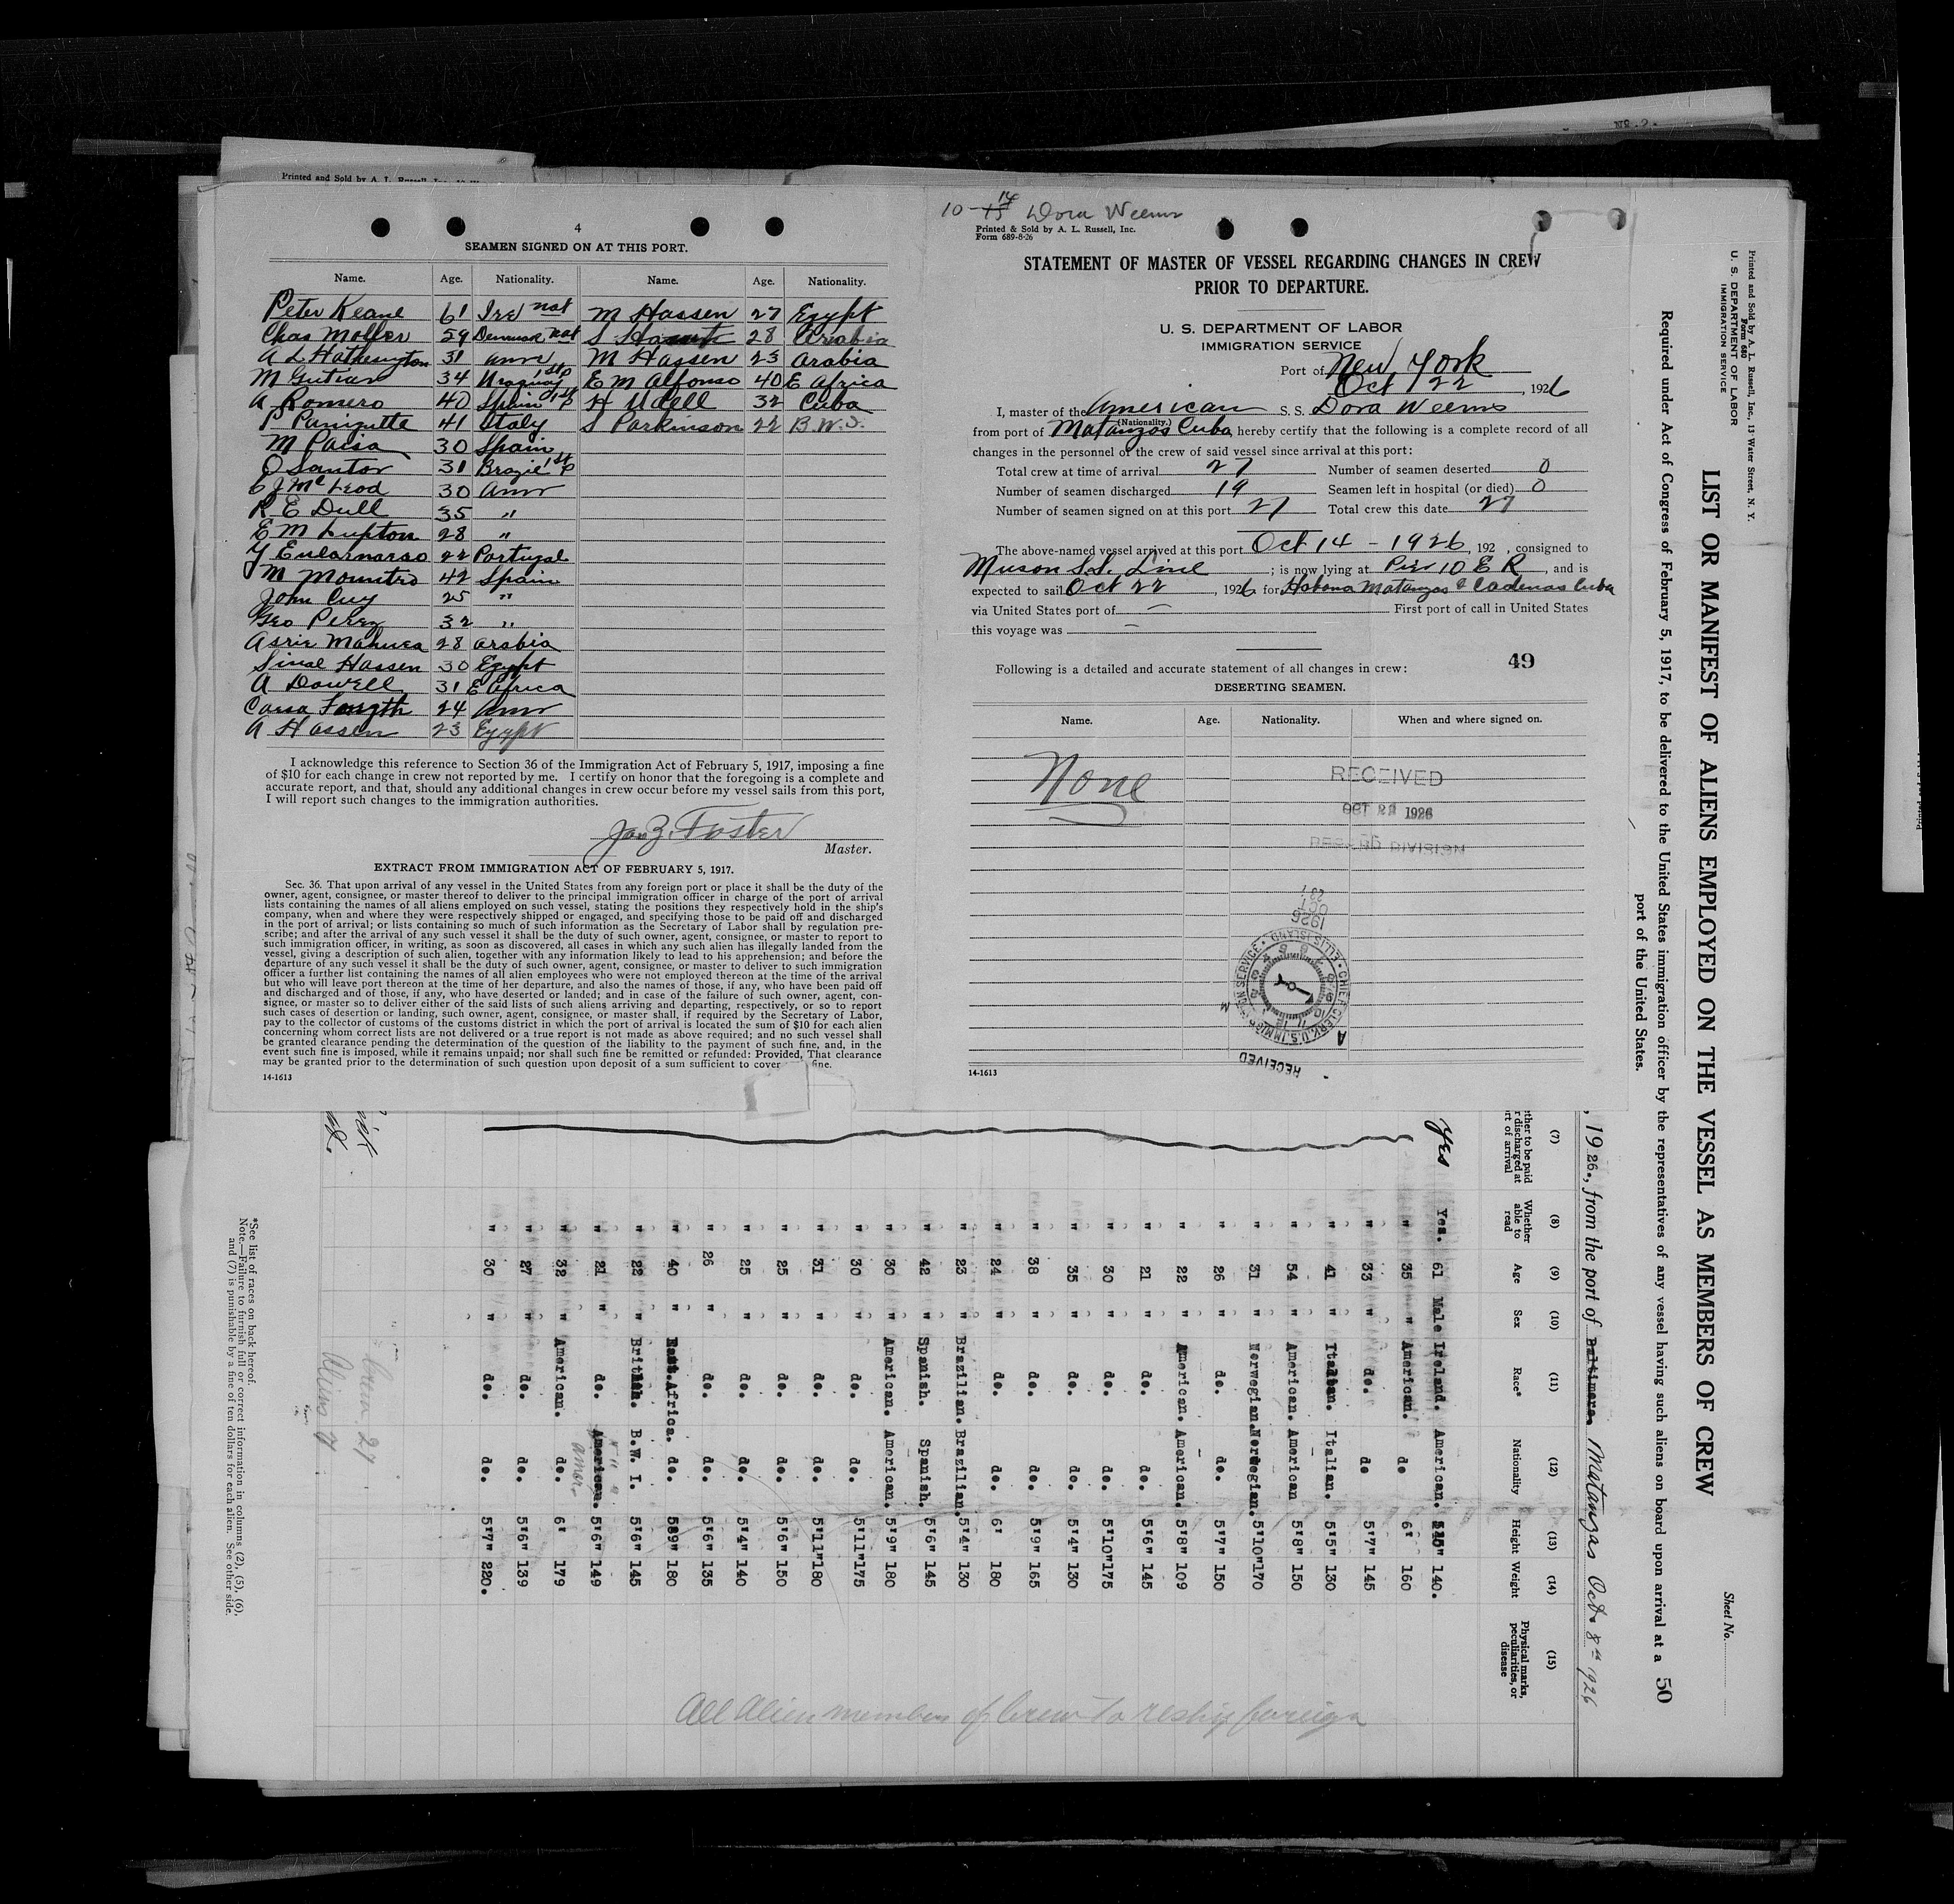 Printed and Sold by A. L. Russell, Inc.
No. 2.
4
SEAMEN SIGNED ON AT THIS PORT.
Name. Age. Nationality. Name. Age. Nationality.
Peter Keane 61 Ire nat M Hassen 27 Egypt
Chas Moller 59 Denmark nat S 28 Arabia
A L Hathersington 31 Amr M Hassen 23 Arabia
M Gutian 34 Uraguay 1st P E M Alfonso 40 E Africa
A Romero 40 Spain 1st P H Udell 32 Cuba
P Panizutte 41 Italy S Parkinson 22 B.W.I.
M Paisa 30 Spain
O Santor 31 Brazil 1st P
E J McLeod 30 Amr
R E Dull 35 "
E M Lupton 28 "
Y Encarnarso 22 Portugal
M Mountro 42 Spain
John Cuy 25 "
Geo Perez 32 "
Asrir Mahuea 28 Arabia
Sinal Hassen 30 Egypt
A Dowell 31 E Africa
Carsa Forsyth 24 Amr
A Hassen 23 Egypt
I acknowledge this reference to Section 36 of the Immigration Act of February 5, 1917, imposing a fine
of $10 for each change in crew not reported by me. I certify on honor that the foregoing is a complete and
accurate report, and that, should any additional changes in crew occur before my vessel sails from this port,
I will report such changes to the immigration authorities.
Jas Z. Foster
Master.
EXTRACT FROM IMMIGRATION ACT OF FEBRUARY 5, 1917.
Sec. 36. That upon arrival of any vessel in the United States from any foreign port or place it shall be the duty of the
owner, agent, consignee, or master thereof to deliver to the principal immigration officer in charge of the port of arrival
lists containing the names of all aliens employed on such vessel, stating the positions they respectively hold in the ship's
company, when and where they were respectively shipped or engaged, and specifying those to be paid off and discharged
in the port of arrival; or lists containing so much of such information as the Secretary of Labor shall by regulation pre-
scribe; and after the arrival of any such vessel it shall be the duty of such owner, agent, consignee, or master to report to
such immigration officer, in writing, as soon as discovered, all cases in which any such alien has illegally landed from the
vessel, giving a description of such alien, together with any information likely to lead to his apprehension; and before the
departure of any such vessel it shall be the duty of such owner, agent, consignee, or master to deliver to such immigration
officer a further list containing the names of all alien employees who were not employed thereon at the time of the arrival
but who will leave port thereon at the time of her departure, and also the names of those, if any, who have been paid off
and discharged and of those, if any, who have deserted or landed; and in case of the failure of such owner, agent, con-
signee, or master so to deliver either of the said lists of such aliens arriving and departing, respectively, or so to report
such cases of desertion or landing, such owner, agent, consignee, or master shall, if required by the Secretary of Labor,
pay to the collector of customs of the customs district in which the port of arrival is located the sum of $10 for each alien
concerning whom correct lists are not delivered or a true report is not made as above required; and no such vessel shall
be granted clearance pending the determination of the question of the liability to the payment of such fine, and, in the
event such fine is imposed, while it remains unpaid; nor shall such fine be remitted or refunded: Provided, That clearance
may be granted prior to the determination of such question upon deposit of a sum sufficient to cover fine.
14-1613
10-15 14 Dora Weems
Printed & Sold by A. L. Russell, Inc.
Form 689-8-26
STATEMENT OF MASTER OF VESSEL REGARDING CHANGES IN CREW
PRIOR TO DEPARTURE.
U. S. DEPARTMENT OF LABOR
IMMIGRATION SERVICE
Port of New York
Oct 22, 1926
I, master of the American S. S. Dora Weems
(Nationality.)
from port of Matanzos Cuba, hereby certify that the following is a complete record of all
changes in the personnel of the crew of said vessel since arrival at this port:
Total crew at time of arrival 27 Number of seamen deserted 0
Number of seamen discharged 19 Seamen left in hospital (or died) 0
Number of seamen signed on at this port 27 Total crew this date 27
The above-named vessel arrived at this port Oct 14 - 1926, 192 , consigned to
Munson S.S. Line ; is now lying at Pier 10 E R, and is
expected to sail Oct 22, 1926 for Habana Matanzas & Cadenas Cuba
via United States port of — First port of call in United States
this voyage was —
49
Following is a detailed and accurate statement of all changes in crew:
DESERTING SEAMEN.
Name. Age. Nationality. When and where signed on.
None
RECEIVED
OCT 22 1926
DIVISION
1926
OCT
23
CHIEF CLERK, U.S. IMMIGRATION SERVICE • ELLIS ISLAND •
A M
RECEIVED
14-1613
Printed and Sold by A. L. Russell, Inc., 13 Water Street, N. Y.
Form 680
U. S. DEPARTMENT OF LABOR
IMMIGRATION SERVICE
Sheet No.
LIST OR MANIFEST OF ALIENS EMPLOYED ON THE VESSEL AS MEMBERS OF CREW
Required under Act of Congress of February 5, 1917, to be delivered to the United States immigration officer by the representatives of any vessel having such aliens on board upon arrival at a
port of the United States.
50
, 1926., from the port of Baltimore. Matanzas Oct. 8th 1926
(7) (8) (9) (10) (11) (12) (13) (14) (15)
ther to be paid r discharged at rt of arrival Whether able to read Age Sex Race* Nationality Height Weight Physical marks, peculiarities, or disease
yes Yes. 61 Male Ireland. American. 5'5" 140.
" 35 " American. do 6' 160
" 33 " do. do 5'7" 145
" 41 " Italian. Italian. 5'5" 130
" 54 " American. American 5'8" 150
" 31 " Norwegian. Norwegian. 5'10" 170
" 26 " do. do. 5'7" 150
" 22 " American. American. 5'8" 109
" 21 " do. do. 5'6" 145
" 30 " do. do. 5'10" 175
" 35 " do. do. 5'4" 130
" 38 " do. do. 5'9" 165
" 24 " do. do. 6' 180
" 23 " Brazilian. Brazilian. 5'4" 130
" 42 " Spanish. Spanish. 5'6" 145
" 30 " American. American. 5'9" 180
" 30 " do. do. 5'11" 175
" 31 " do. do. 5'11" 180
" 25 " do. do. 5'6" 150
" 25 " do. do. 5'4" 140
" 26 " do. do. 5'6" 135
" 40 " East.Africa. do. 5'9" 180
" 22 " British. B.W. I. 5'6" 145
" 21 " do. American. 5'6" 149
amer-
" 32 " American. do. 6' 179
" 27 " do. do. 5'6" 139
" 30 " do. do. 5'7" 220.
All Alien members of Crew to reship foreign
Crew 27
Aliens 7
*See list of races on back hereof.
Note.—Failure to furnish full or correct information in columns (2), (5), (6),
and (7) is punishable by a fine of ten dollars for each alien. See other side.